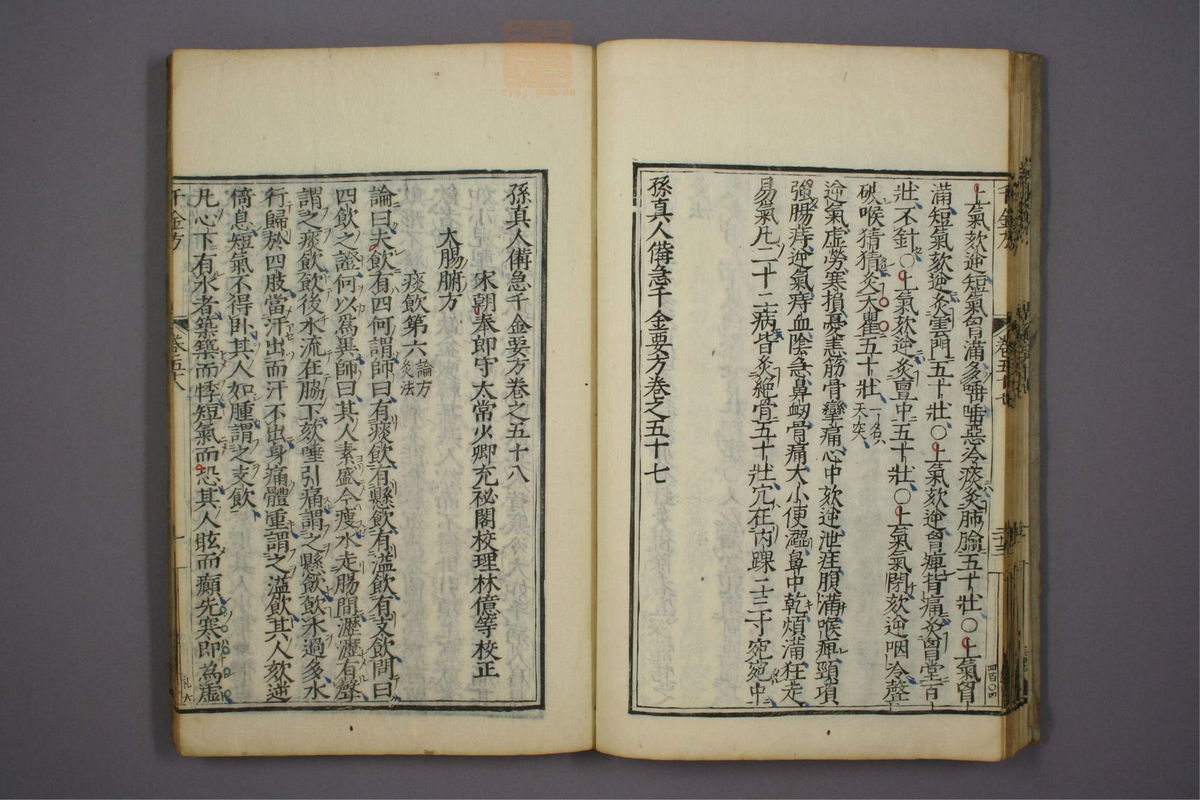 上氣欬逆短氣胷滿多唾唾惡冷痰灸肺腧五十壯○上氣胷
滿短氣欬逆灸雲門五十壯○上氣欬逆胷痺背痛灸胷堂百
壯不針○上氣欬逆灸亶中五十壯○上氣氣閉欬逆咽冷聲
破喉猜猜灸天瞿五十壯一名天突
逆氣虛勞寒損憂恚筋骨攣痛心中欬逆泄注腹滿喉痺頸項
強腸痔逆氣痔血陰急鼻衂骨痛大小便澀鼻中乾煩滿狂走
易氣凡二十二病皆灸絕骨五十壯穴在內踝上三寸宛宛中
孫真人備急千金要方卷之五十七
孫真人備急千金要方卷之五十八
宋朝奉郎守太常少卿充祕閣校理林億等校正
大腸腑方
痰飲第六論方灸法
論曰夫飲有四何謂師曰有痰飲有縣飲有溢飲有支飲問曰
四飲之證何以為異師曰其人素盛今瘦水走腸間瀝瀝有聲
謂之痰飲飲後水流在脇下欬唾引痛謂之縣飲飲水過多水
行歸於四肢當汗出而汗不出身痛體重謂之溢飲其人欬逆
倚息短氣不得臥其人如腫謂之支飲
凡心下有水者築築而悸短氣而恐其人眩而癲先寒即為虛
千金方 卷五十八